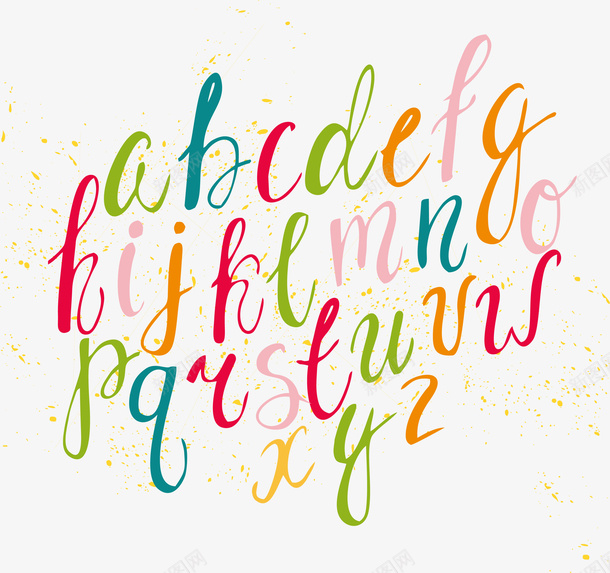 abcdefg
hijklmno
pqrstuvw
xyz